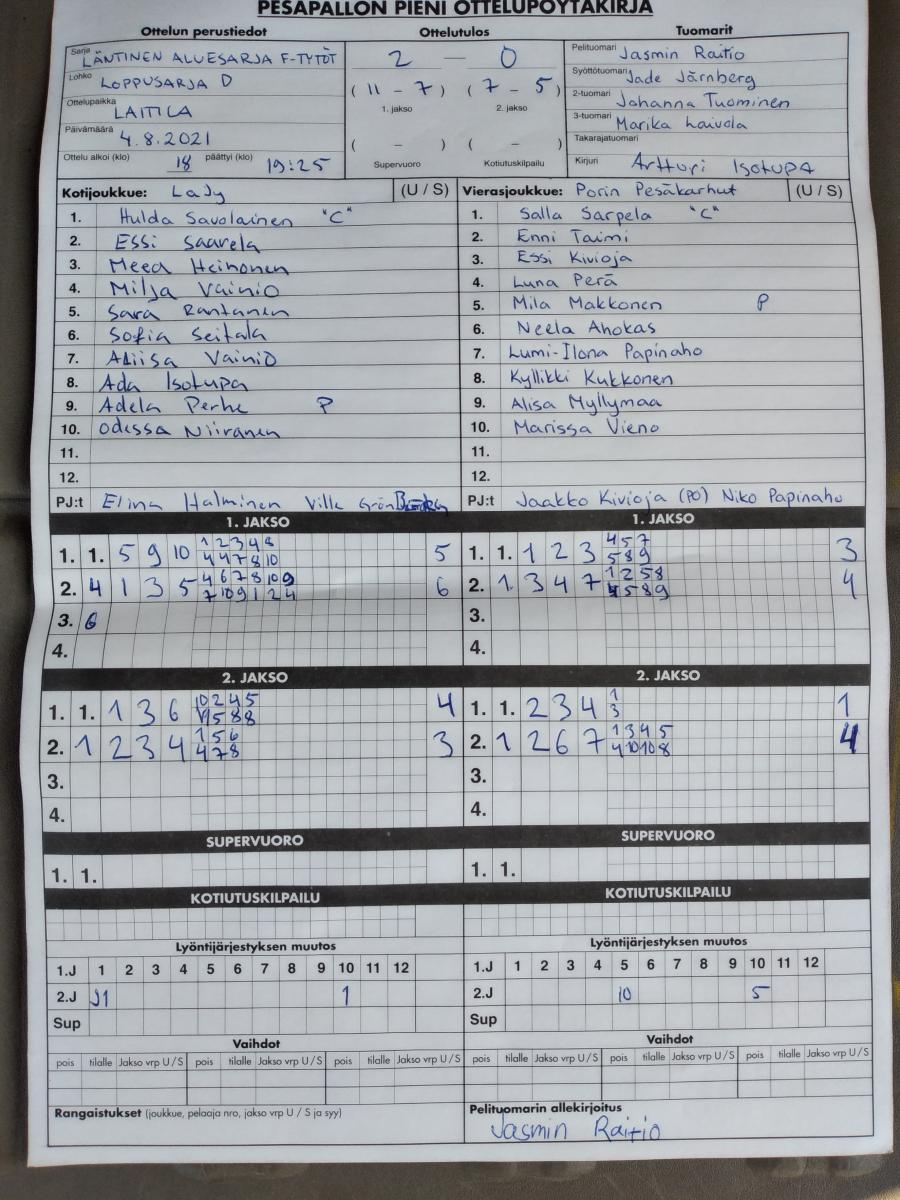 PESÄPALLON PIENI OTTELUPÖYTÄKIRJA
Ottelun perustiedot Ottelutulos Tuomarit
Sarja LÄNTINEN ALUESARJA F-TYTÖT
Lohko LOPPUSARJA D
Ottelupaikka LAITILA
Päivämäärä 4.8.2021
Ottelu alkoi (klo) 18 päättyi (klo) 19:25
2 — 0
( 11 - 7 ) ( 7 - 5 )
1. jakso 2. jakso
( - ) ( - )
Supervuoro Kotiutuskilpailu
Pelituomari Jasmin Raitio
Syöttötuomari Jade Järnberg
2-tuomari Johanna Tuominen
3-tuomari Marika Laivola
Takarajatuomari
Kirjuri Artturi Isotupa
Kotijoukkue: LaJy (U / S)
1. Hulda Savolainen "C"
2. Essi Saarela
3. Meea Heinonen
4. Milja Vainio
5. Sara Rantanen
6. Sofia Seitala
7. Aliisa Vainio
8. Ada Isotupa
9. Adela Perhe P
10. Odessa Niiranen
11.
12.
PJ:t Elina Halminen Ville
Vierasjoukkue: Porin Pesäkarhut (U / S)
1. Salla Sarpela "C"
2. Enni Taimi
3. Essi Kivioja
4. Luna Perä
5. Mila Makkonen P
6. Neela Ahokas
7. Lumi-Ilona Papinaho
8. Kyllikki Kukkonen
9. Alisa Myllymaa
10. Marissa Vieno
11.
12.
PJ:t Jaakko Kivioja (PO) Niko Papinaho
1. JAKSO
1. 1. 5 9 10 1 2 3 4 8 5
4 4 7 8 10
2. 4 1 3 5 4 6 7 8 10 9 6
7 10 9 1 2 4
3. 6
4.
1. JAKSO
1. 1. 1 2 3 4 5 7 3
5 8 9
2. 1 3 4 7 1 2 5 8 4
4 5 8 9
3.
4.
2. JAKSO
1. 1. 1 3 6 10 2 4 5 4
5 8 8
2. 1 2 3 4 1 5 6 3
4 7 8
3.
4.
2. JAKSO
1. 1. 2 3 4 1 1
3
2. 1 2 6 7 1 3 4 5 4
4 10 10 8
3.
4.
SUPERVUORO
1. 1.
SUPERVUORO
1. 1.
KOTIUTUSKILPAILU
KOTIUTUSKILPAILU
Lyöntijärjestyksen muutos
1.J 1 2 3 4 5 6 7 8 9 10 11 12
2.J 1
Sup
Lyöntijärjestyksen muutos
1.J 1 2 3 4 5 6 7 8 9 10 11 12
2.J 10 5
Sup
Vaihdot
pois tilalle Jakso vrp U / S pois tilalle Jakso vrp U / S pois tilalle Jakso vrp U / S
Vaihdot
pois tilalle Jakso vrp U / S pois tilalle Jakso vrp U / S pois tilalle Jakso vrp U / S
Rangaistukset (joukkue, pelaaja nro, jakso vrp U / S ja syy)
Pelituomarin allekirjoitus
Jasmin Raitio